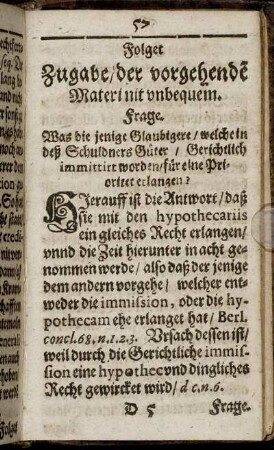 57
Folget
Zugabe/der vorgehendē
Materi nit vnbequem.
Frage.
Was die jenige Glaubigere/welche in
deß Schuldners Güter/Gerichtlich
immittirt worden/für eine Pri-
oritet erlangen?
Hierauff ist die Antwort/daß
sie mit den hypothecariis
ein gleiches Recht erlangen/
vnnd die Zeit hierunter in acht ge-
nommen werde/also daß der jenige
dem andern vorgehe/welcher ent-
weder die immission, oder die hy-
pothecam ehe erlanget hat/Berl.
concl. 68. n. 1. 2. 3. Vrsach dessen ist/
weil durch die Gerichtliche immis-
sion eine hypothec vnd dingliches
Recht gewircket wird/d c. n. 6.
D 5 Frage.